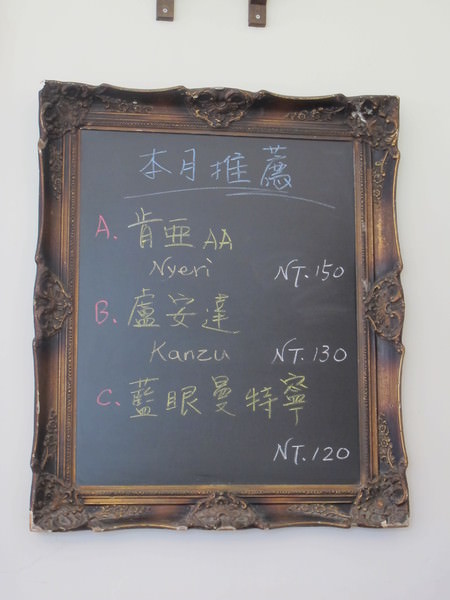 本月推薦
A. 肯亜 AA
Nyeri NT.150
B. 盧安達
Kanzu NT.130
C. 藍眼曼特寧
NT.120